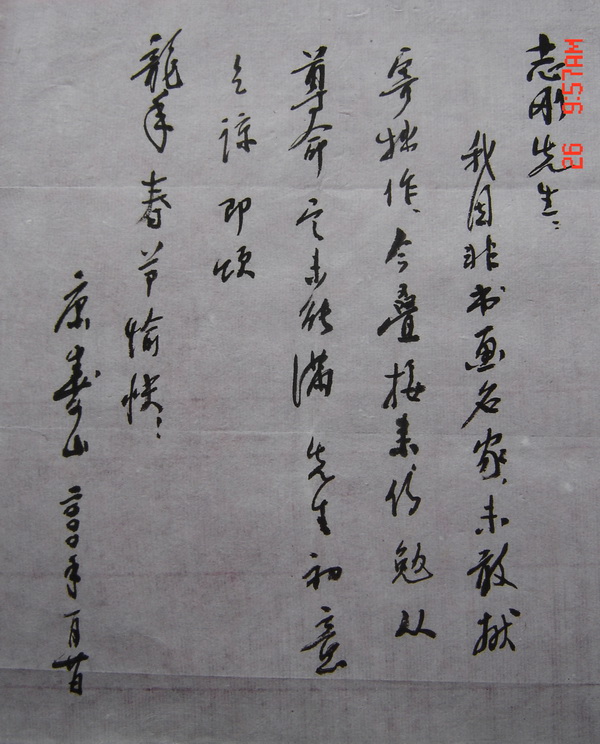 志刚先生：
我因非书画名家，未敢献
寄拙作，今叠接来信勉从
尊命 定未能满 先生初意
乞谅 即颂
龙年春节愉快：
康寿山 二〇〇〇年一月廿日
26 9:57AM